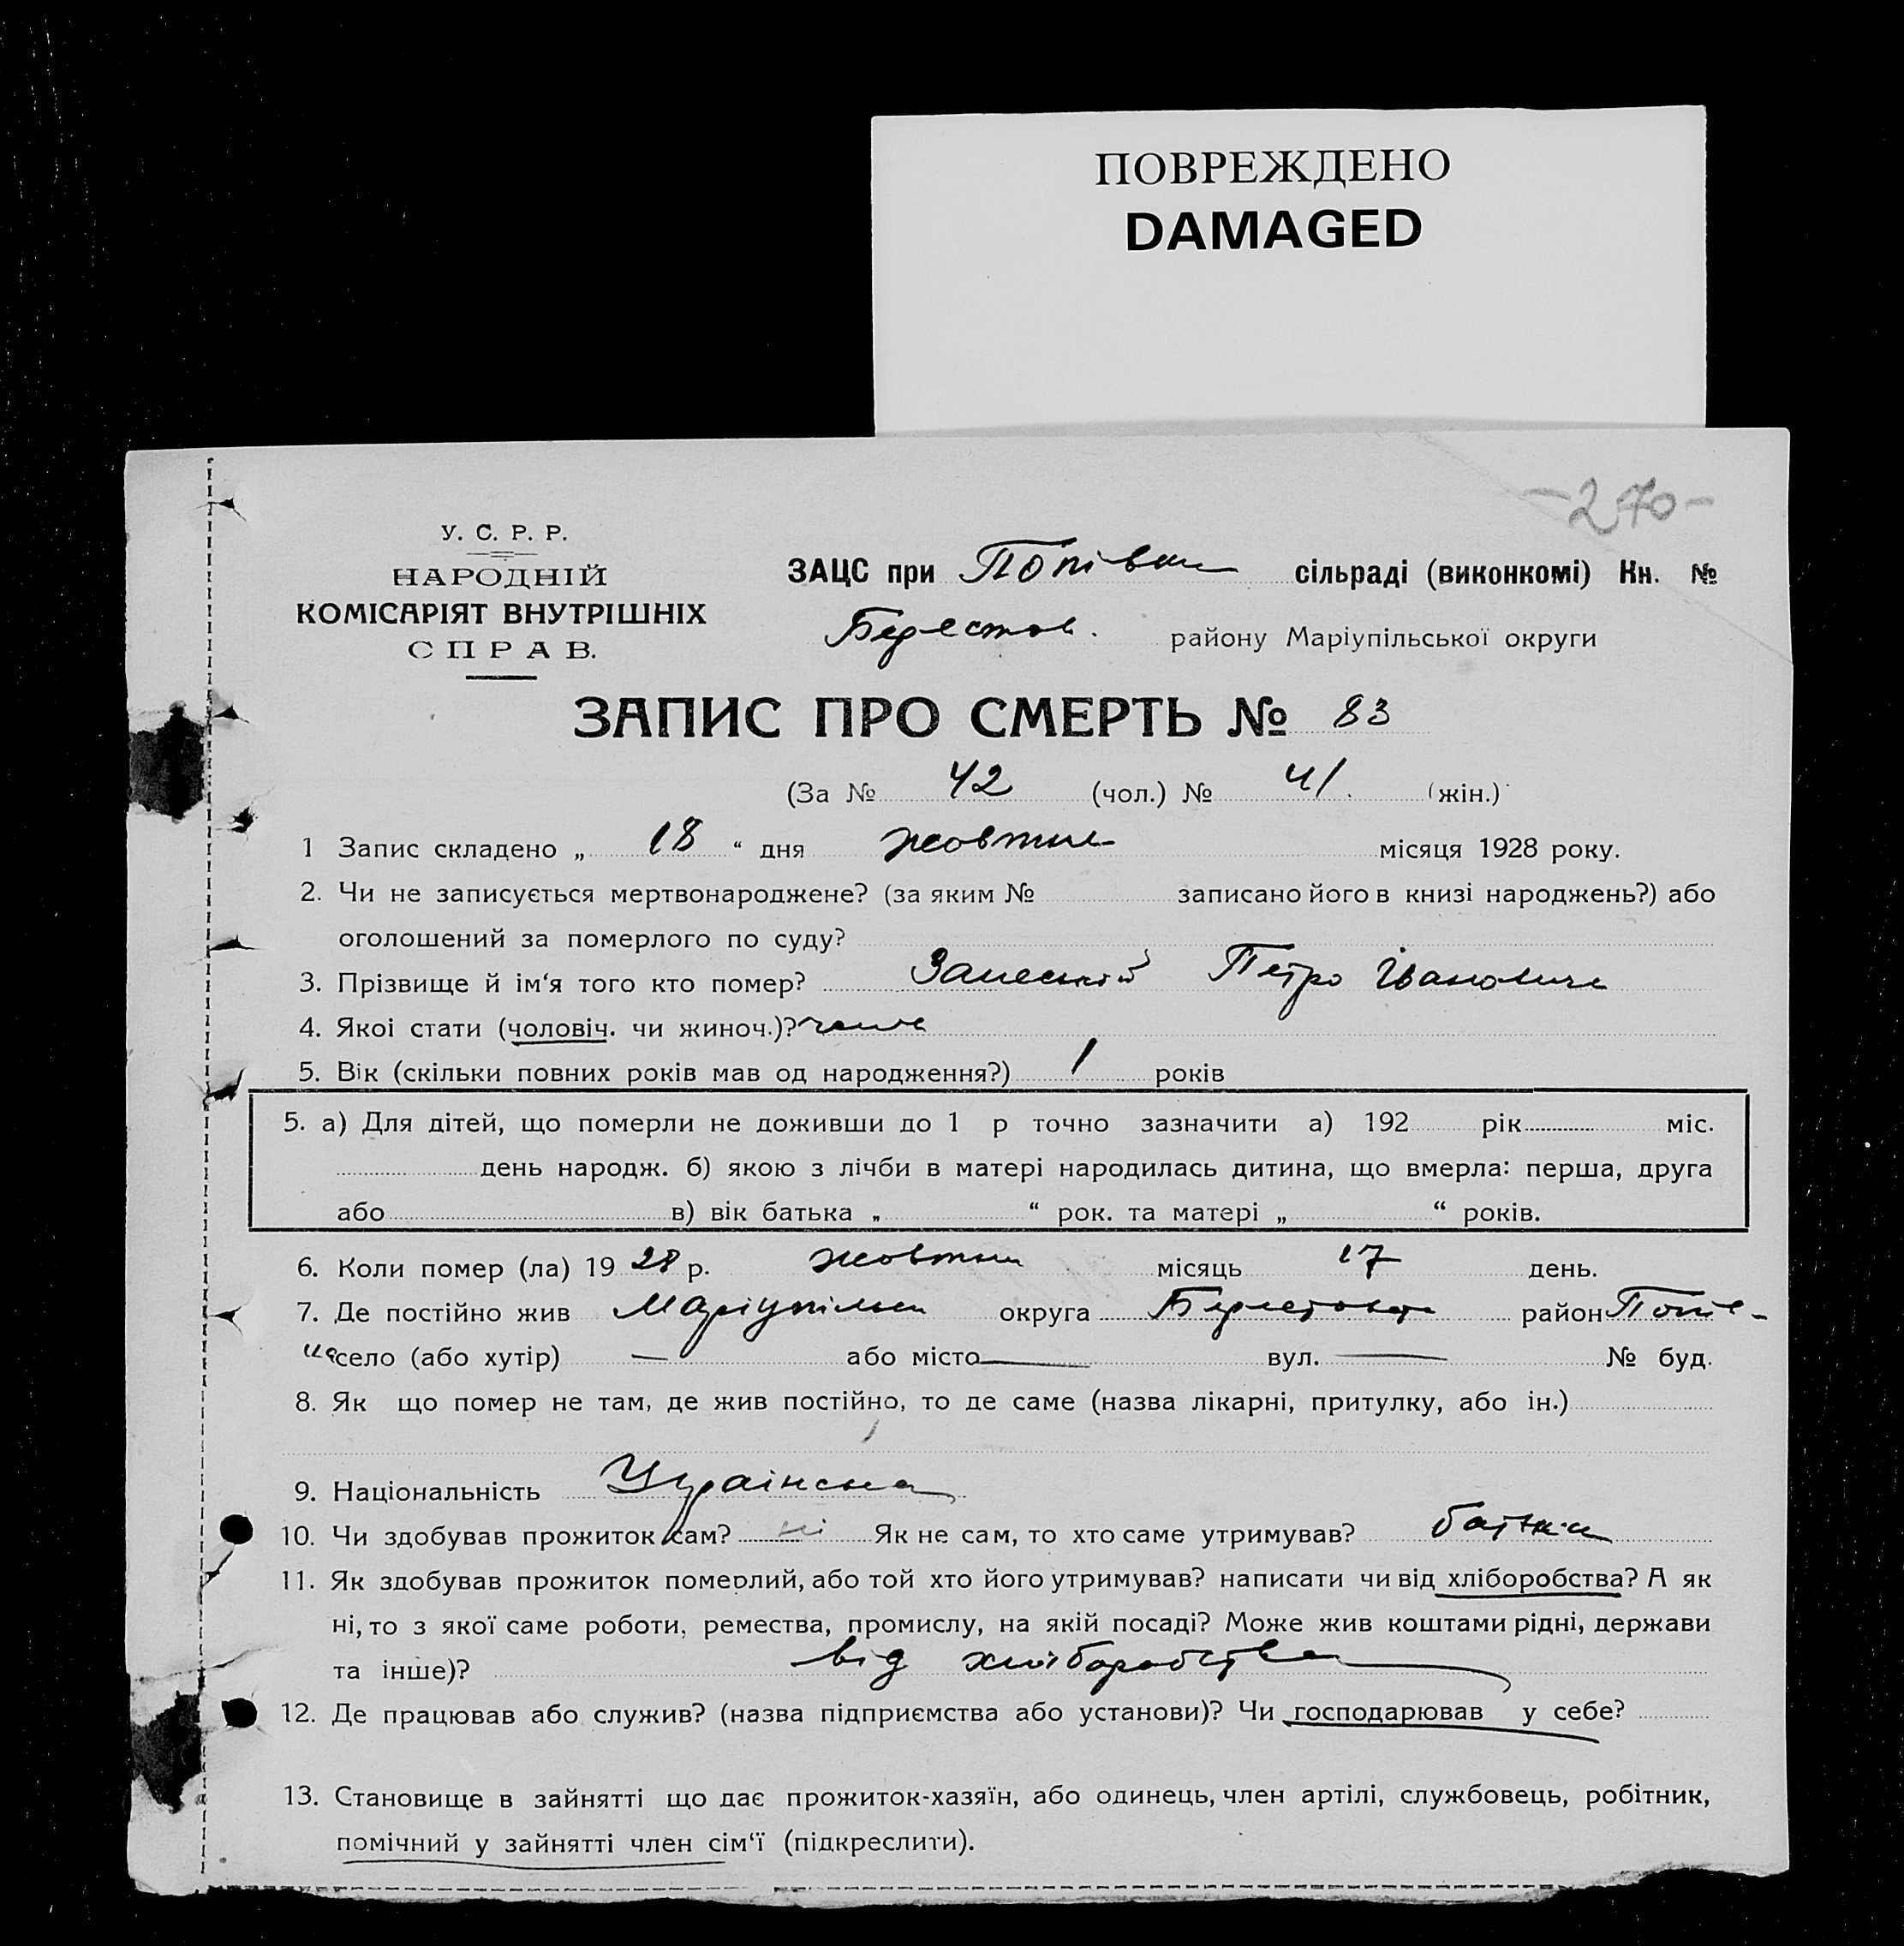 ПОВРЕЖДЕНО
DAMAGED
-270-
У. С. Р. Р.
НАРОДНІЙ
КОМІСАРІЯТ ВНУТРІШНІХ
СПРАВ.
ЗАЦС при Попівськ сільраді (виконкомі) Кн. №
Берестов. району Маріупільської округи
ЗАПИС ПРО СМЕРТЬ № 83
(За № 42 (чол.) № 41. (жін.)
1 Запис складено „ 18 “ дня жовтня місяця 1928 року.
2. Чи не записується мертвонароджене? (за яким № записано його в книзі народжень?) або
оголошений за померлого по суду?
3. Прізвище й ім‘я того кто помер? Петро Іванович
4. Якоі стати (чоловіч. чи жиноч.)?
5. Вік (скільки повних років мав од народження?) 1 років
5. а) Для дітей, що померли не доживши до 1 р точно зазначити а) 192 рік міс.
день народж. б) якою з лічби в матері народилась дитина, що вмерла: перша, друга
або в) вік батька „ “ рок. та матері „ “ років.
6. Коли помер (ла) 19 28 р. жовтня місяць 17 день.
7. Де постійно жив Маріупільськ округа Берестовськ район Попів-
ка село (або хутір) — або місто — вул. — № буд.
8. Як що помер не там, де жив постійно, то де саме (назва лікарні, притулку, або ін.)
9. Національність Українська
10. Чи здобував прожиток сам? ні Як не сам, то хто саме утримував? батьки
11. Як здобував прожиток померлий, або той хто його утримував? написати чи від хліборобства? А як
ні, то з якої саме роботи, ремества, промислу, на якій посаді? Може жив коштами рідні, держави
та інше)? від хліборобства
12. Де працював або служив? (назва підприємства або установи)? Чи господарював у себе?
13. Становище в зайнятті що дає прожиток-хазяїн, або одинець, член артілі, службовець, робітник,
помічний у зайнятті член сім‘ї (підкреслити).